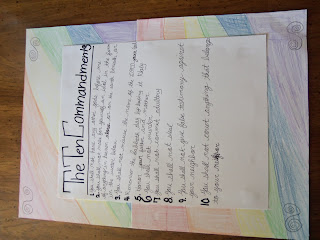 The Ten Commandments
1 You shall not have any other gods before me
2 You shall not make for yourself an idol in the form
of anything in heaven above or on the earth beneath or
in the waters below.
3 You shall not misuse the name of the LORD your God
4 Remember the Sabbath day by keeping it Holy
5 Honor your father and mother
6 You shall not murder
7 You shall not commit adultery
8 You shall not steal
9 You shall not give false testimony against
your neighbor
10 You shall not covet anything that belongs
to your neighbor